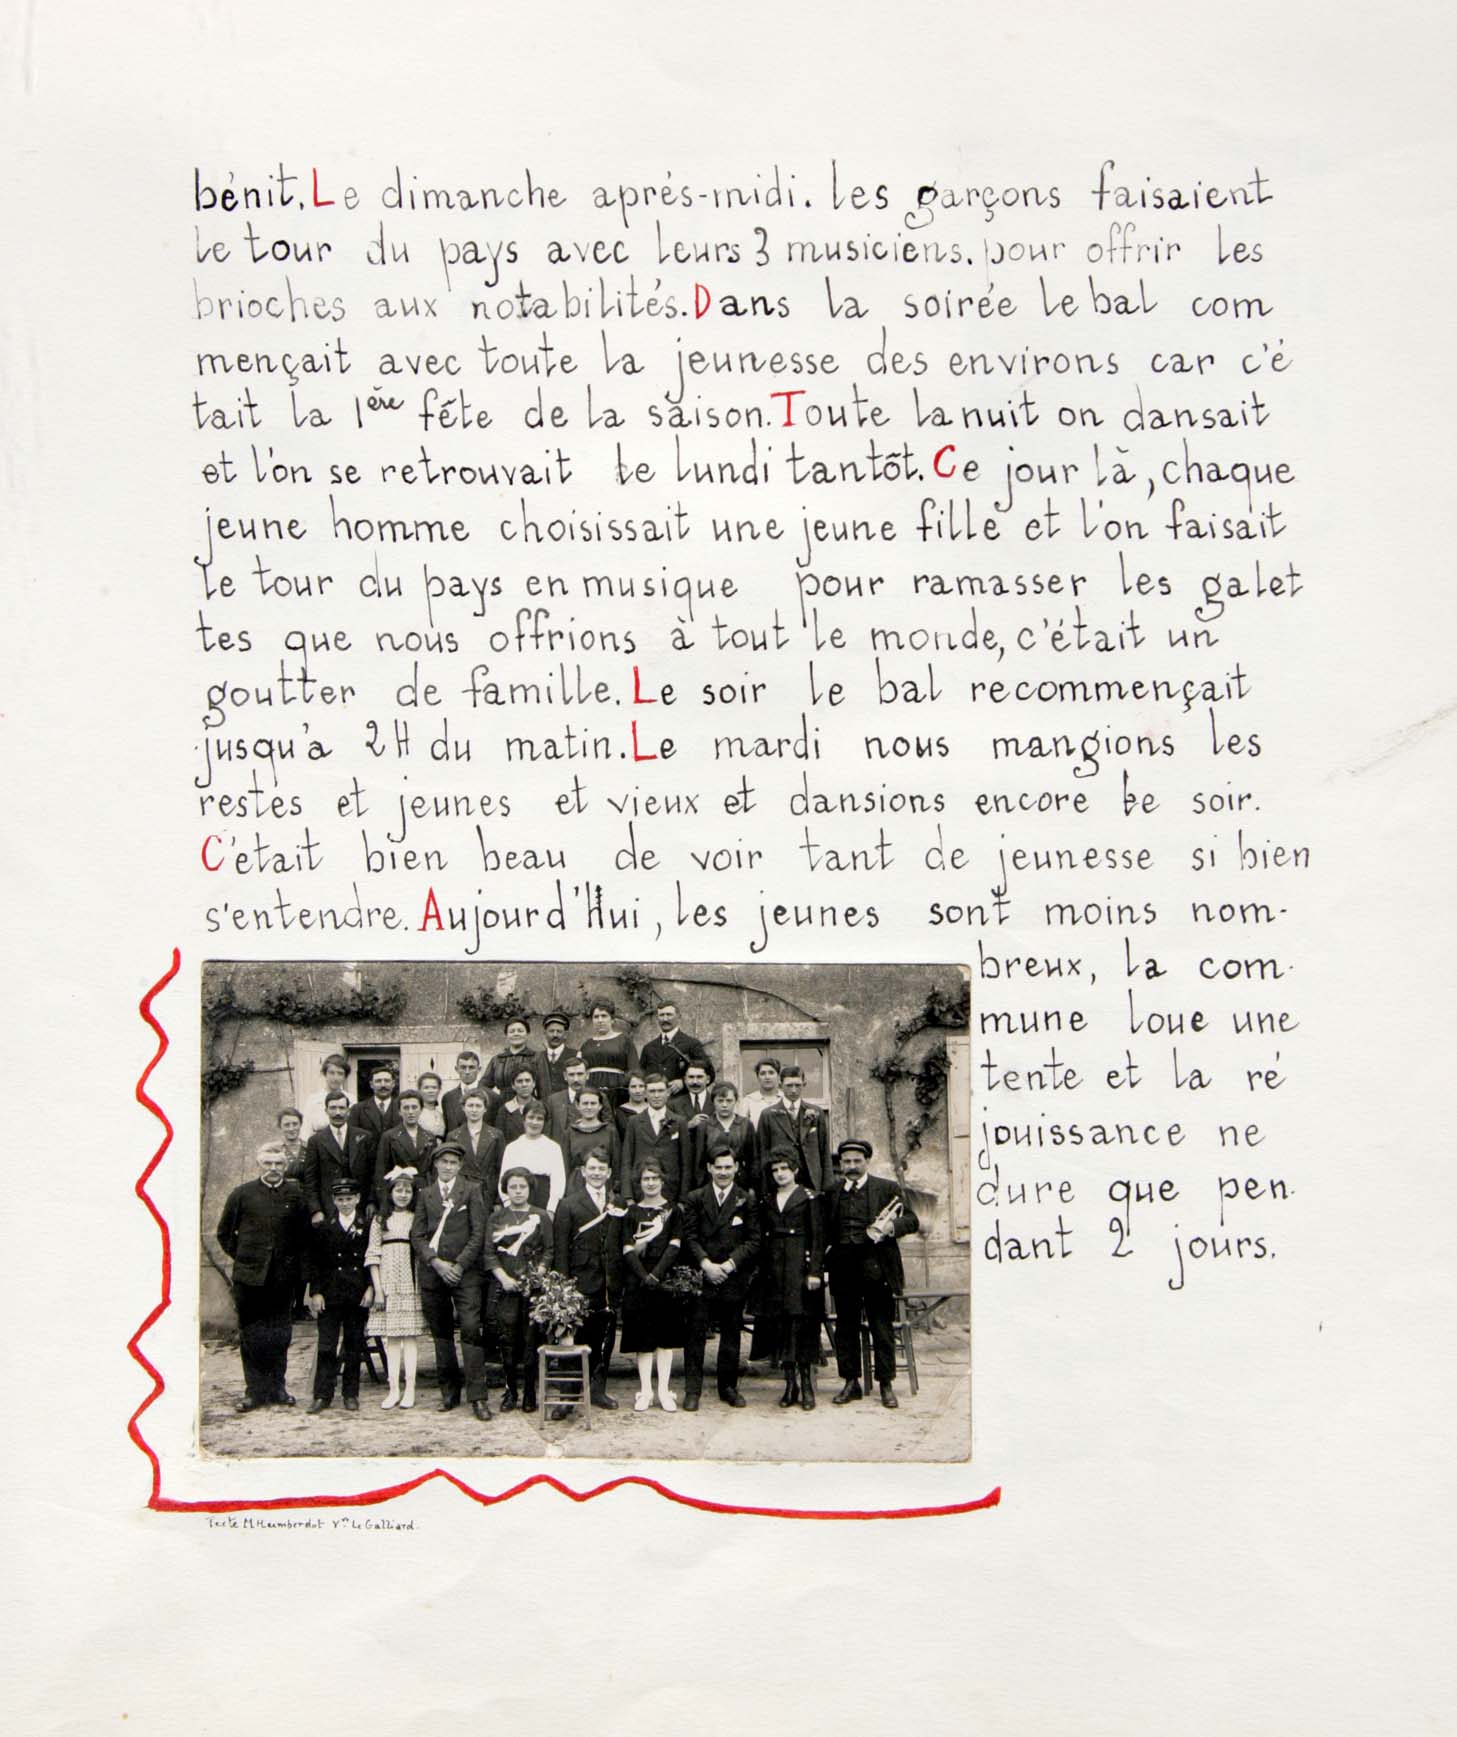 bénit. Le dimanche aprés-midi. les garçons faisaient
le tour du pays avec leurs 3 musiciens. pour offrir les
brioches aux notabilités. Dans la soirée le bal com
mençait avec toute la jeunesse des environs car c'é
tait la 1ère féte de la saison. Toute la nuit on dansait
et l'on se retrouvait le lundi tantôt. Ce jour là, chaque
jeune homme choisissait une jeune fille et l'on faisait
le tour du pays en musique pour ramasser les galet
tes que nous offrions à tout le monde, c'était un
goutter de famille. Le soir le bal recommençait
jusqu'a 2H du matin. Le mardi nous mangions les
restes et jeunes et vieux et dansions encore le soir.
C'etait bien beau de voir tant de jeunesse si bien
s'entendre. Aujourd'Hui, les jeunes sont moins nom-
breux, la com-
mune loue une
tente et la ré
jouissance ne
dure que pen-
dant 2 jours.
Texte M Humberdot Le Galliard.